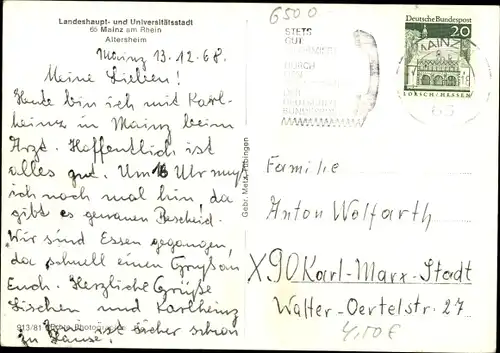 Landeshaupt- und Universitätsstadt
65 Mainz am Rhein
Altersheim
Mainz 13.12.68.
Meine Lieben!
Heute bin ich mit Karl-
heinz in Mainz beim
Arzt. Hoffentlich ist
alles gut. Um 16 Uhr muß
ich noch mal hin, da
gibt es genauen Bescheid.
Wir sind Essen gegangen,
da schnell einen Gruß an
Euch. Herzliche Grüße
Lischen und Karlheinz
913/81
ist sicher schon
zu Hause!
Gebr. Metz, Tübingen
6500
STETS
GUT
DURCH
DEN
DER
DEUTSCHEN
BUNDESPOST
Deutsche Bundespost
20
LORSCH/HESSEN
MAINZ
65
Familie
Anton Wolfarth
X90 Karl-Marx-Stadt
Walter-Oertelstr. 27
4,50€